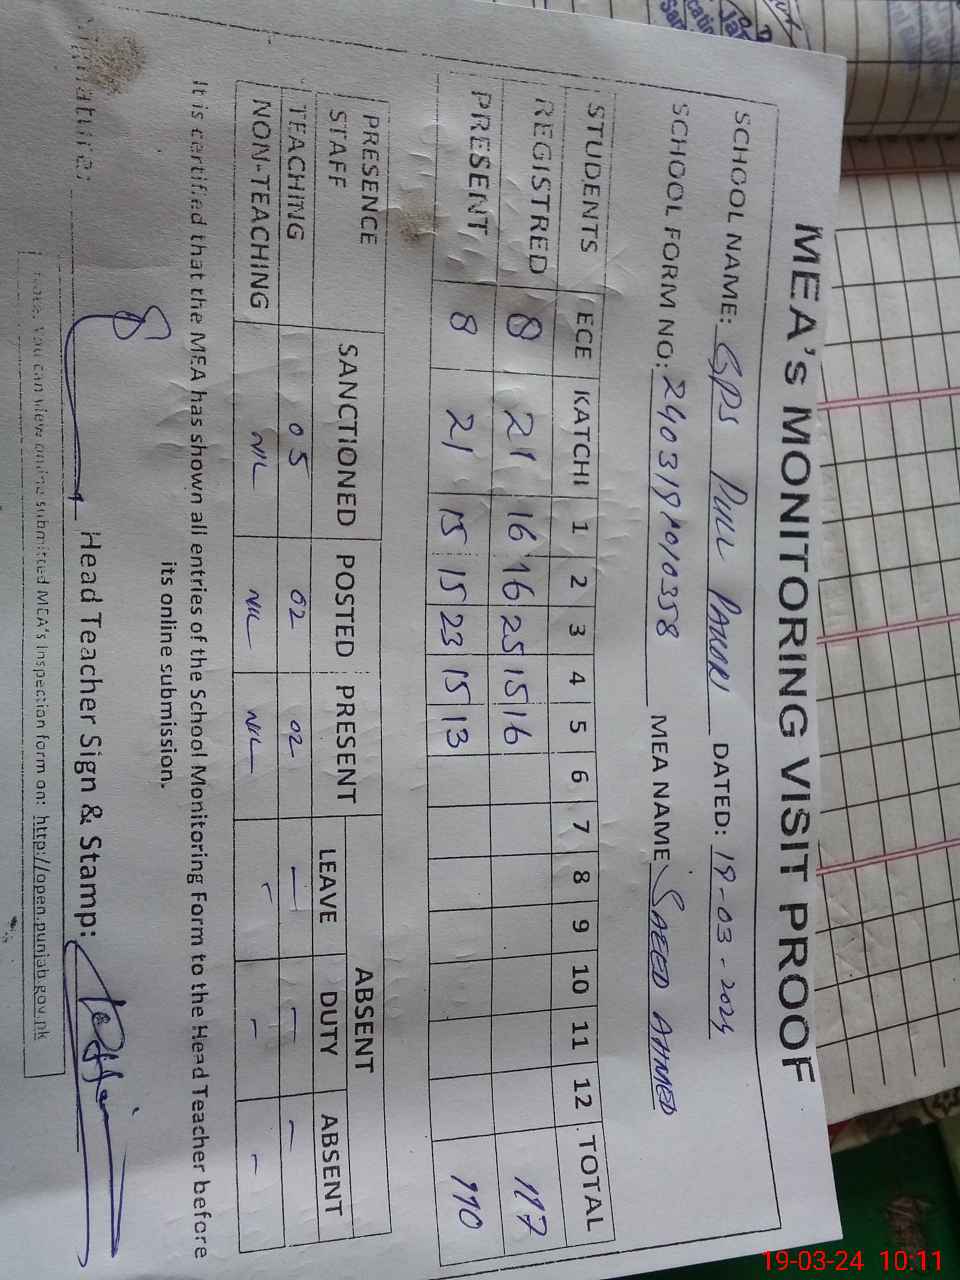 MEA's MONITORING VISIT PROOF
SCHOOL NAME: GPS PULL PAHORI DATED: 19-03-2024
SCHOOL FORM NO: MEA NAME SAEED AHMED
STUDENTS ECE KATCHI 1 2 3 4 5 6 7 8 9 10 11 12 TOTAL
REGISTRED 8 21 16 16 25 15 16 117
PRESENT 8 21 15 15 23 15 13 110
PRESENCE STAFF SANCTIONED POSTED PRESENT ABSENT
LEAVE DUTY ABSENT
TEACHING 05 02 02 — — —
NON-TEACHING NIL NIL NIL - - -
It is certified that the MEA has shown all entries of the School Monitoring Form to the Head Teacher before
its online submission.
Signature: Head Teacher Sign & Stamp:
Note: You can view online submitted MEA's Inspection form on: http://open.punjab.gov.pk
19-03-24 10:11